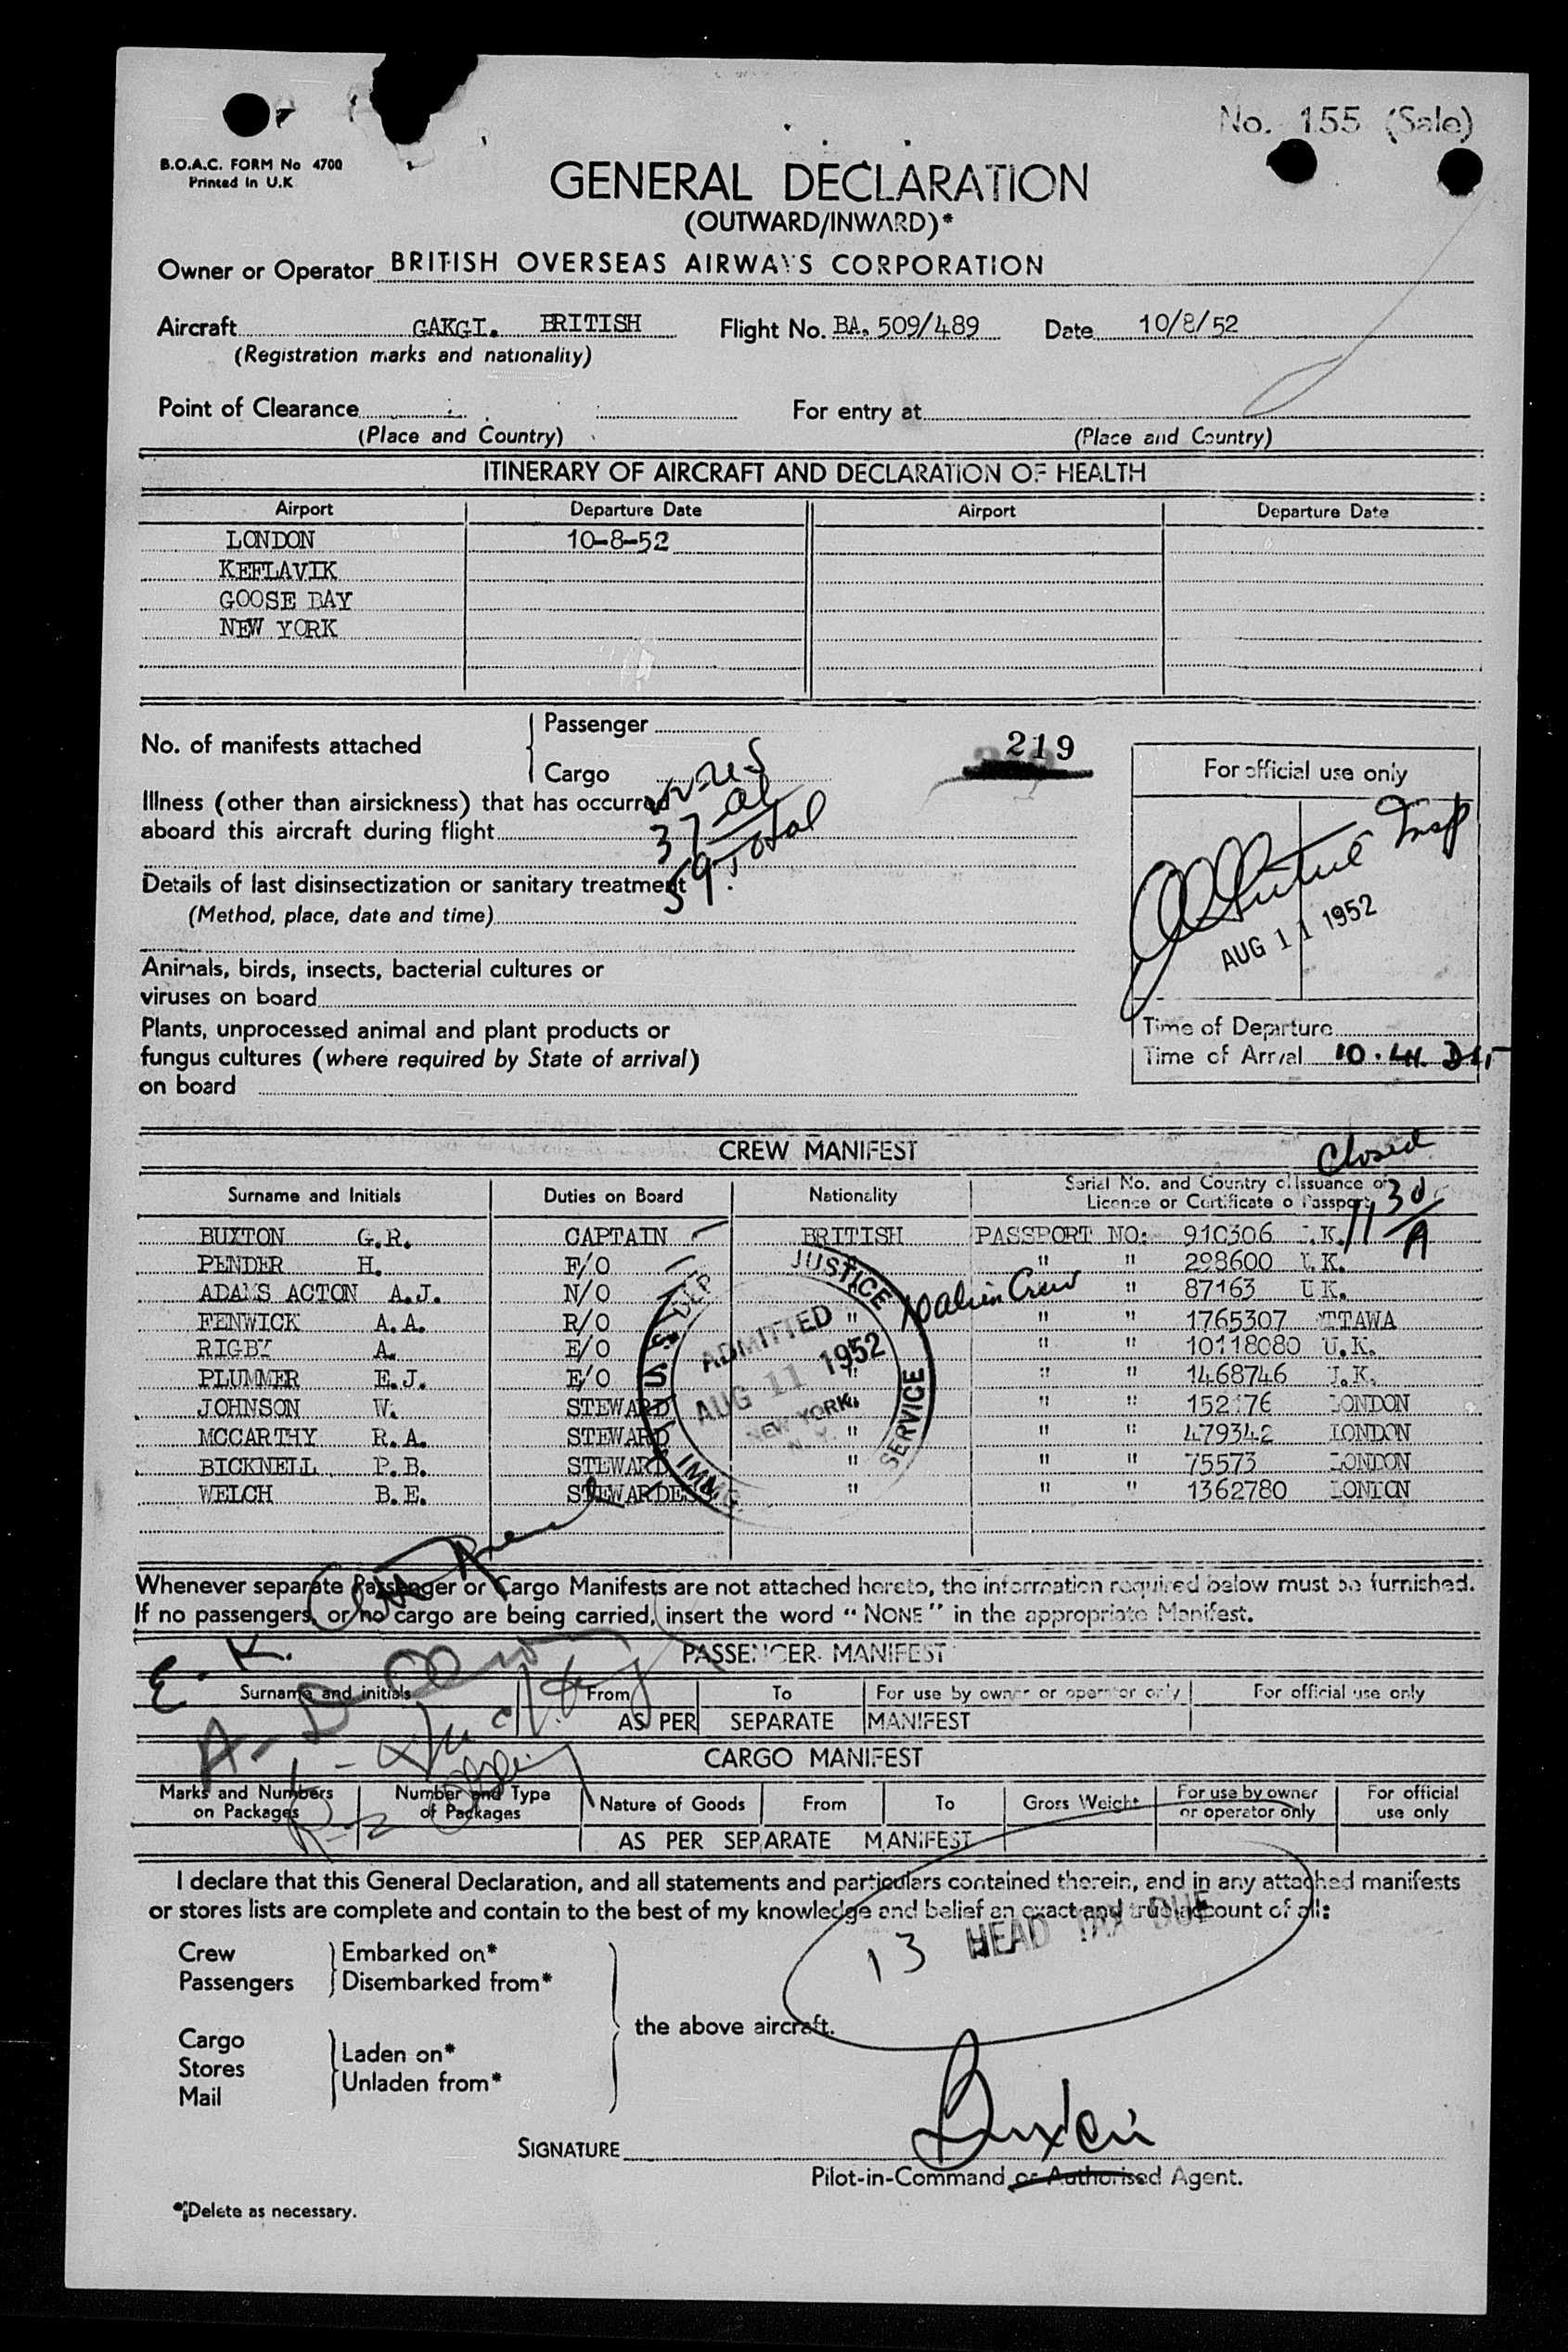 No. 155 (Sale)
B.O.A.C. FORM No 4700
Printed in U.K
GENERAL DECLARATION
(OUTWARD/INWARD)*
Owner or Operator BRITISH OVERSEAS AIRWAYS CORPORATION
Aircraft GAKGI. BRITISH Flight No. BA. 509/489 Date 10/8/52
(Registration marks and nationality)
Point of Clearance For entry at
(Place and Country) (Place and Country)
ITINERARY OF AIRCRAFT AND DECLARATION OF HEALTH
Airport Departure Date Airport Departure Date
LONDON 10-8-52
KEFLAVIK
GOOSE BAY
NEW YORK
No. of manifests attached
Passenger
Cargo
219
For official use only
Illness (other than airsickness) that has occurred
aboard this aircraft during flight
37 al
59 Total
Details of last disinsectization or sanitary treatment
(Method, place, date and time)
Insp
AUG 11 1952
Animals, birds, insects, bacterial cultures or
viruses on board
Plants, unprocessed animal and plant products or
fungus cultures (where required by State of arrival)
on board
Time of Departure
Time of Arrival 10.41
CREW MANIFEST
Closed
Surname and Initials Duties on Board Nationality Serial No. and Country of Issuance of
Licence or Certificate o Passport
BUXTON G.R. CAPTAIN BRITISH PASSPORT NO: 910306 .K.
PENDER H. F/O " " 298600 U.K.
ADAMS ACTON A.J. N/O " 87163 UK.
FENWICK A.A. R/O " " " 1765307 TTAWA
RIGBY A. E/O " " 10118080 U.K.
PLUMMER E.J. E/O " " " 1468746 U.K.
JOHNSON W. STEWARD " " " LONDON
MCCARTHY R.A. STEWARD " " " 479342 LONDON
BICKNELL P.B. STEWARD " " " 75573 LONDON
WELCH B.E. STEWARDESS " " " 1362780 LONDON
10 alien Crew
U.S. DEP JUSTICE
IMMG. SERVICE
ADMITTED
AUG 11 1952
NEW YORK
N. Y.
Whenever separate Passenger or Cargo Manifests are not attached hereto, the information required below must be furnished.
If no passengers, or no cargo are being carried, insert the word "NONE" in the appropriate Manifest.
PASSENGER MANIFEST
Surname and initials From To For use by owner or operator only For official use only
AS PER SEPARATE MANIFEST
CARGO MANIFEST
Marks and Numbers on Packages Number and Type of Packages Nature of Goods From To Gross Weight For use by owner or operator only For official use only
AS PER SEPARATE MANIFEST
I declare that this General Declaration, and all statements and particulars contained therein, and in any attached manifests
or stores lists are complete and contain to the best of my knowledge and belief an exact and true account of all:
13 HEAD TAX DUE
Crew Embarked on*
Passengers Disembarked from*
the above aircraft.
Cargo
Stores
Mail
Laden on*
Unladen from*
SIGNATURE Buxton
Pilot-in-Command or Authorised Agent.
*Delete as necessary.